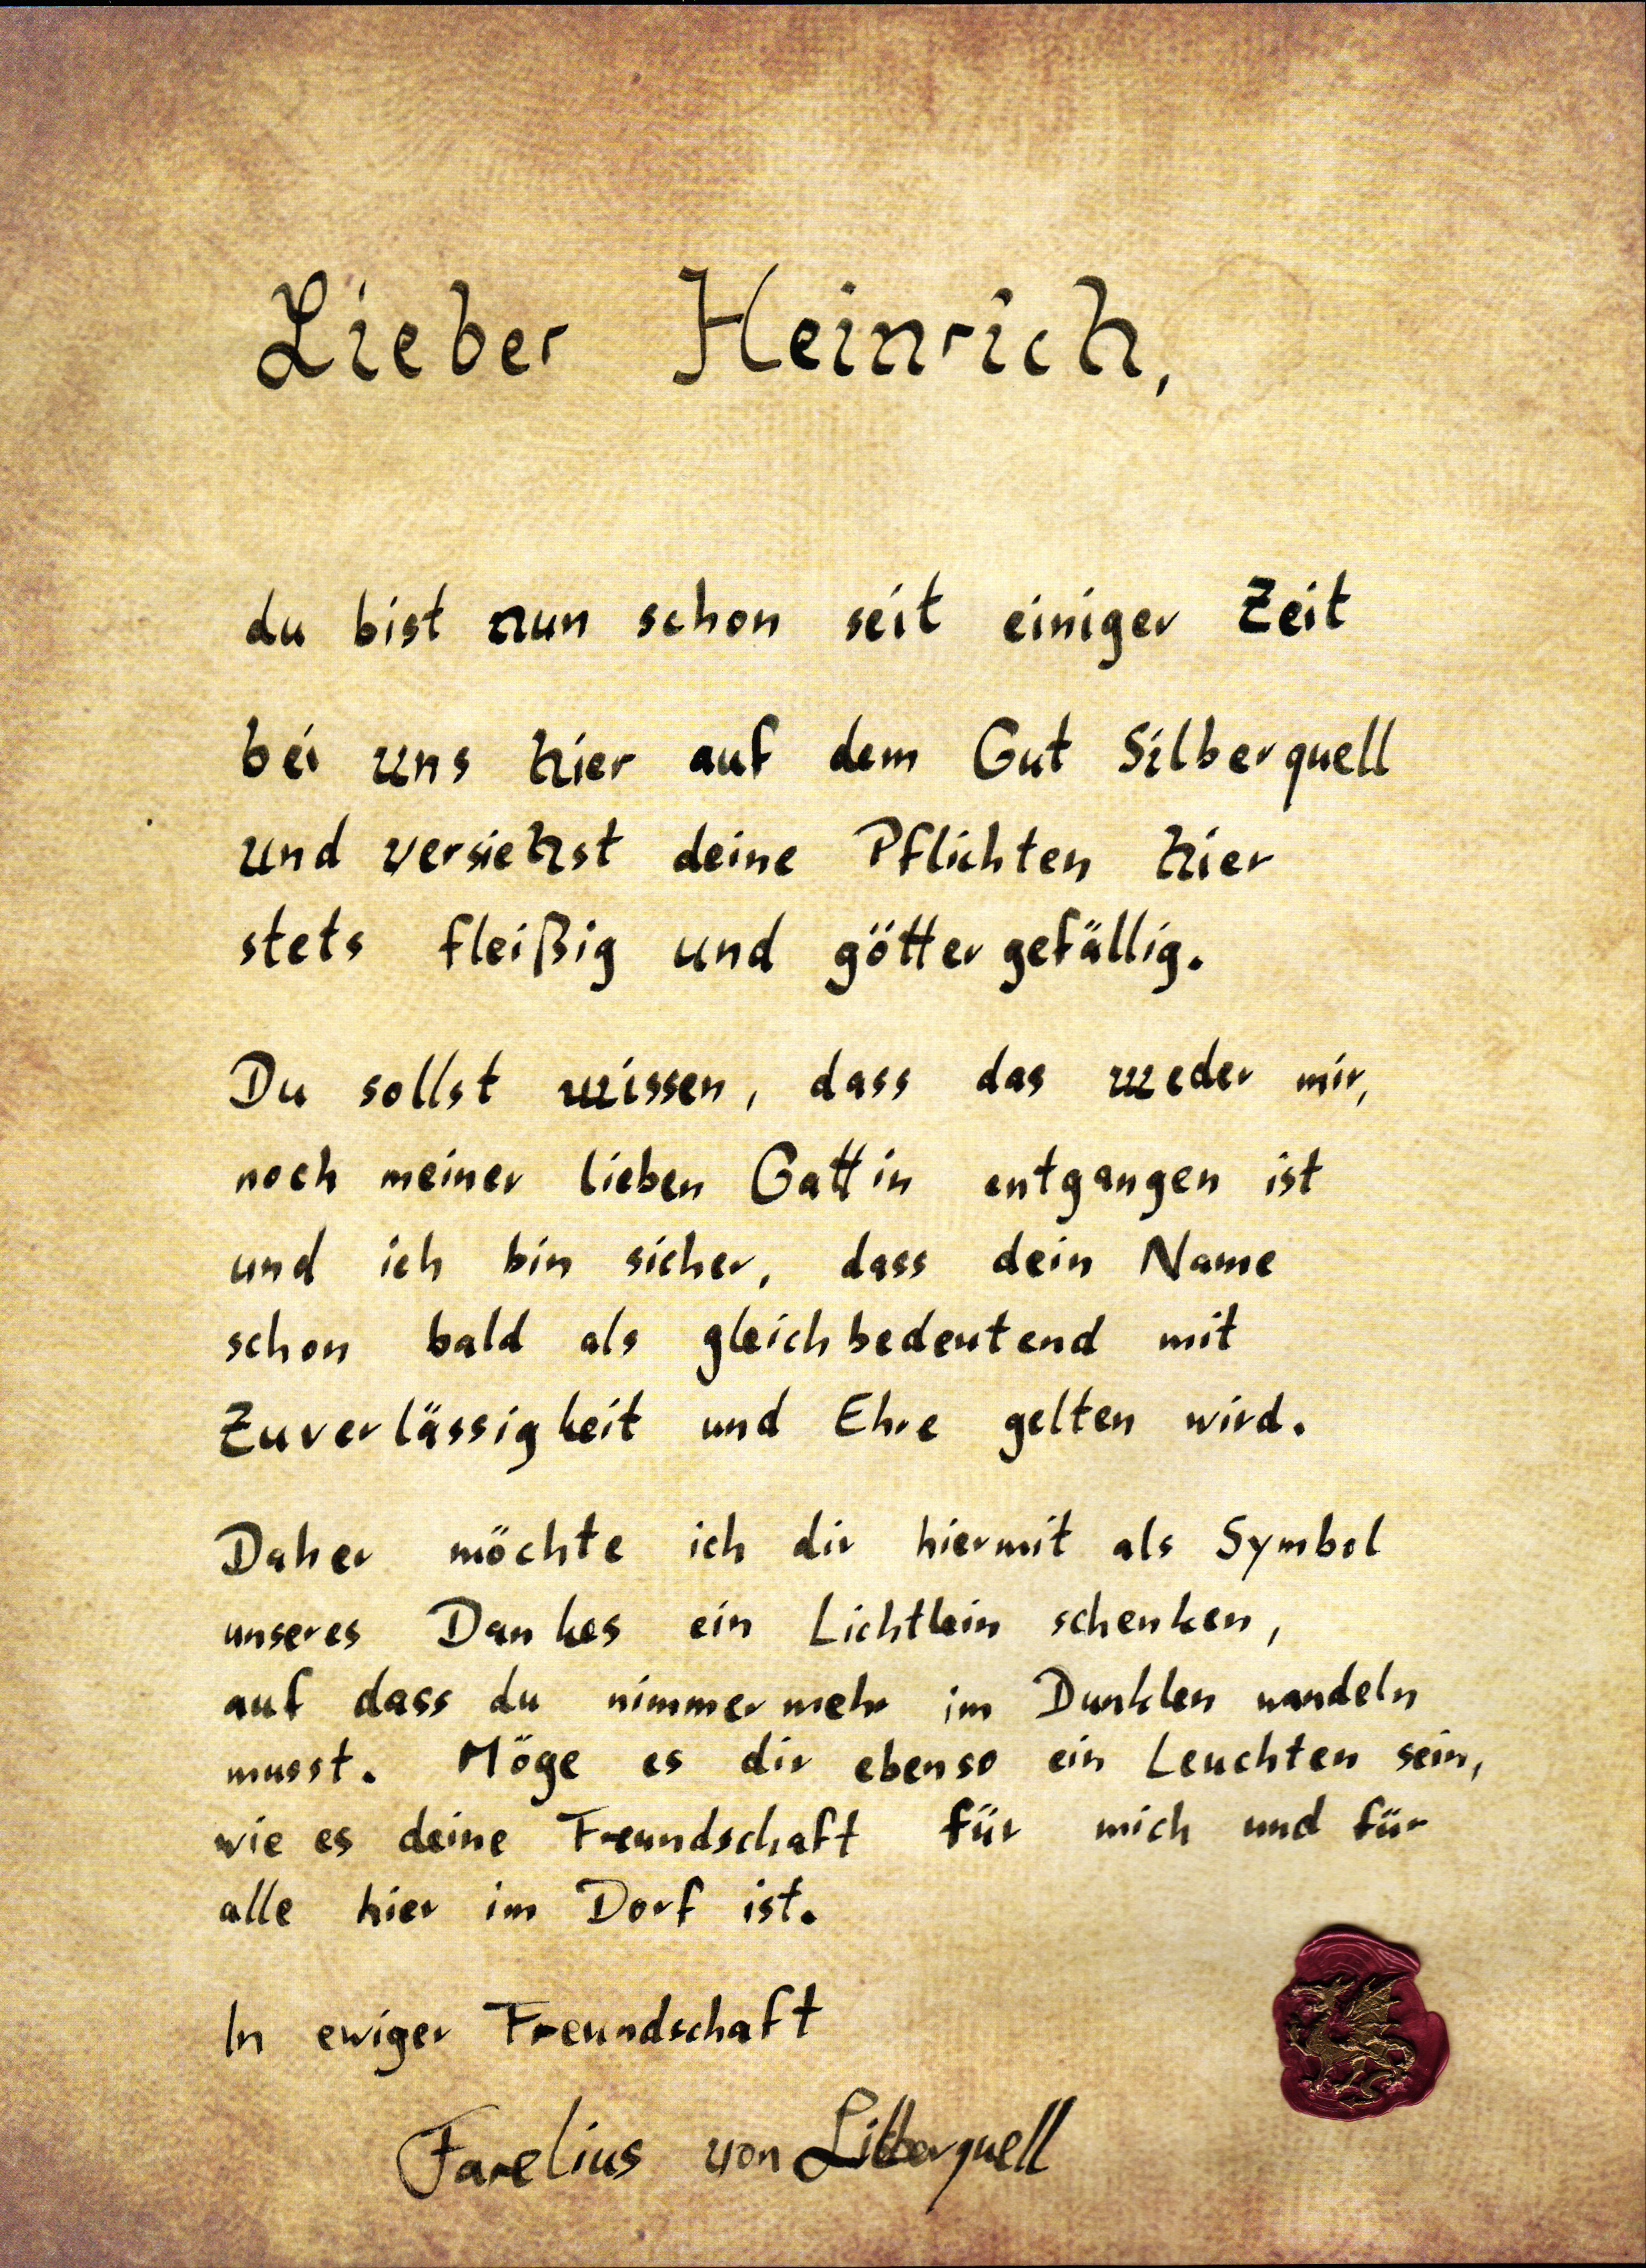 Lieber Heinrich,
du bist nun schon seit einiger Zeit
bei uns hier auf dem Gut Silberquell
und versiehst deine Pflichten hier
stets fleißig und göttergefällig.
Du sollst wissen, dass das weder mir,
noch meiner lieben Gattin entgangen ist
und ich bin sicher, dass dein Name
schon bald als gleichbedeutend mit
Zuverlässigkeit und Ehre gelten wird.
Daher möchte ich dir hiermit als Symbol
unseres Dankes ein Lichtlein schenken,
auf dass du nimmermehr im Dunklen wandeln
musst. Möge es dir ebenso ein Leuchten sein,
wie es deine Freundschaft für mich und für
alle hier im Dorf ist.
In ewiger Freundschaft
Farelius von